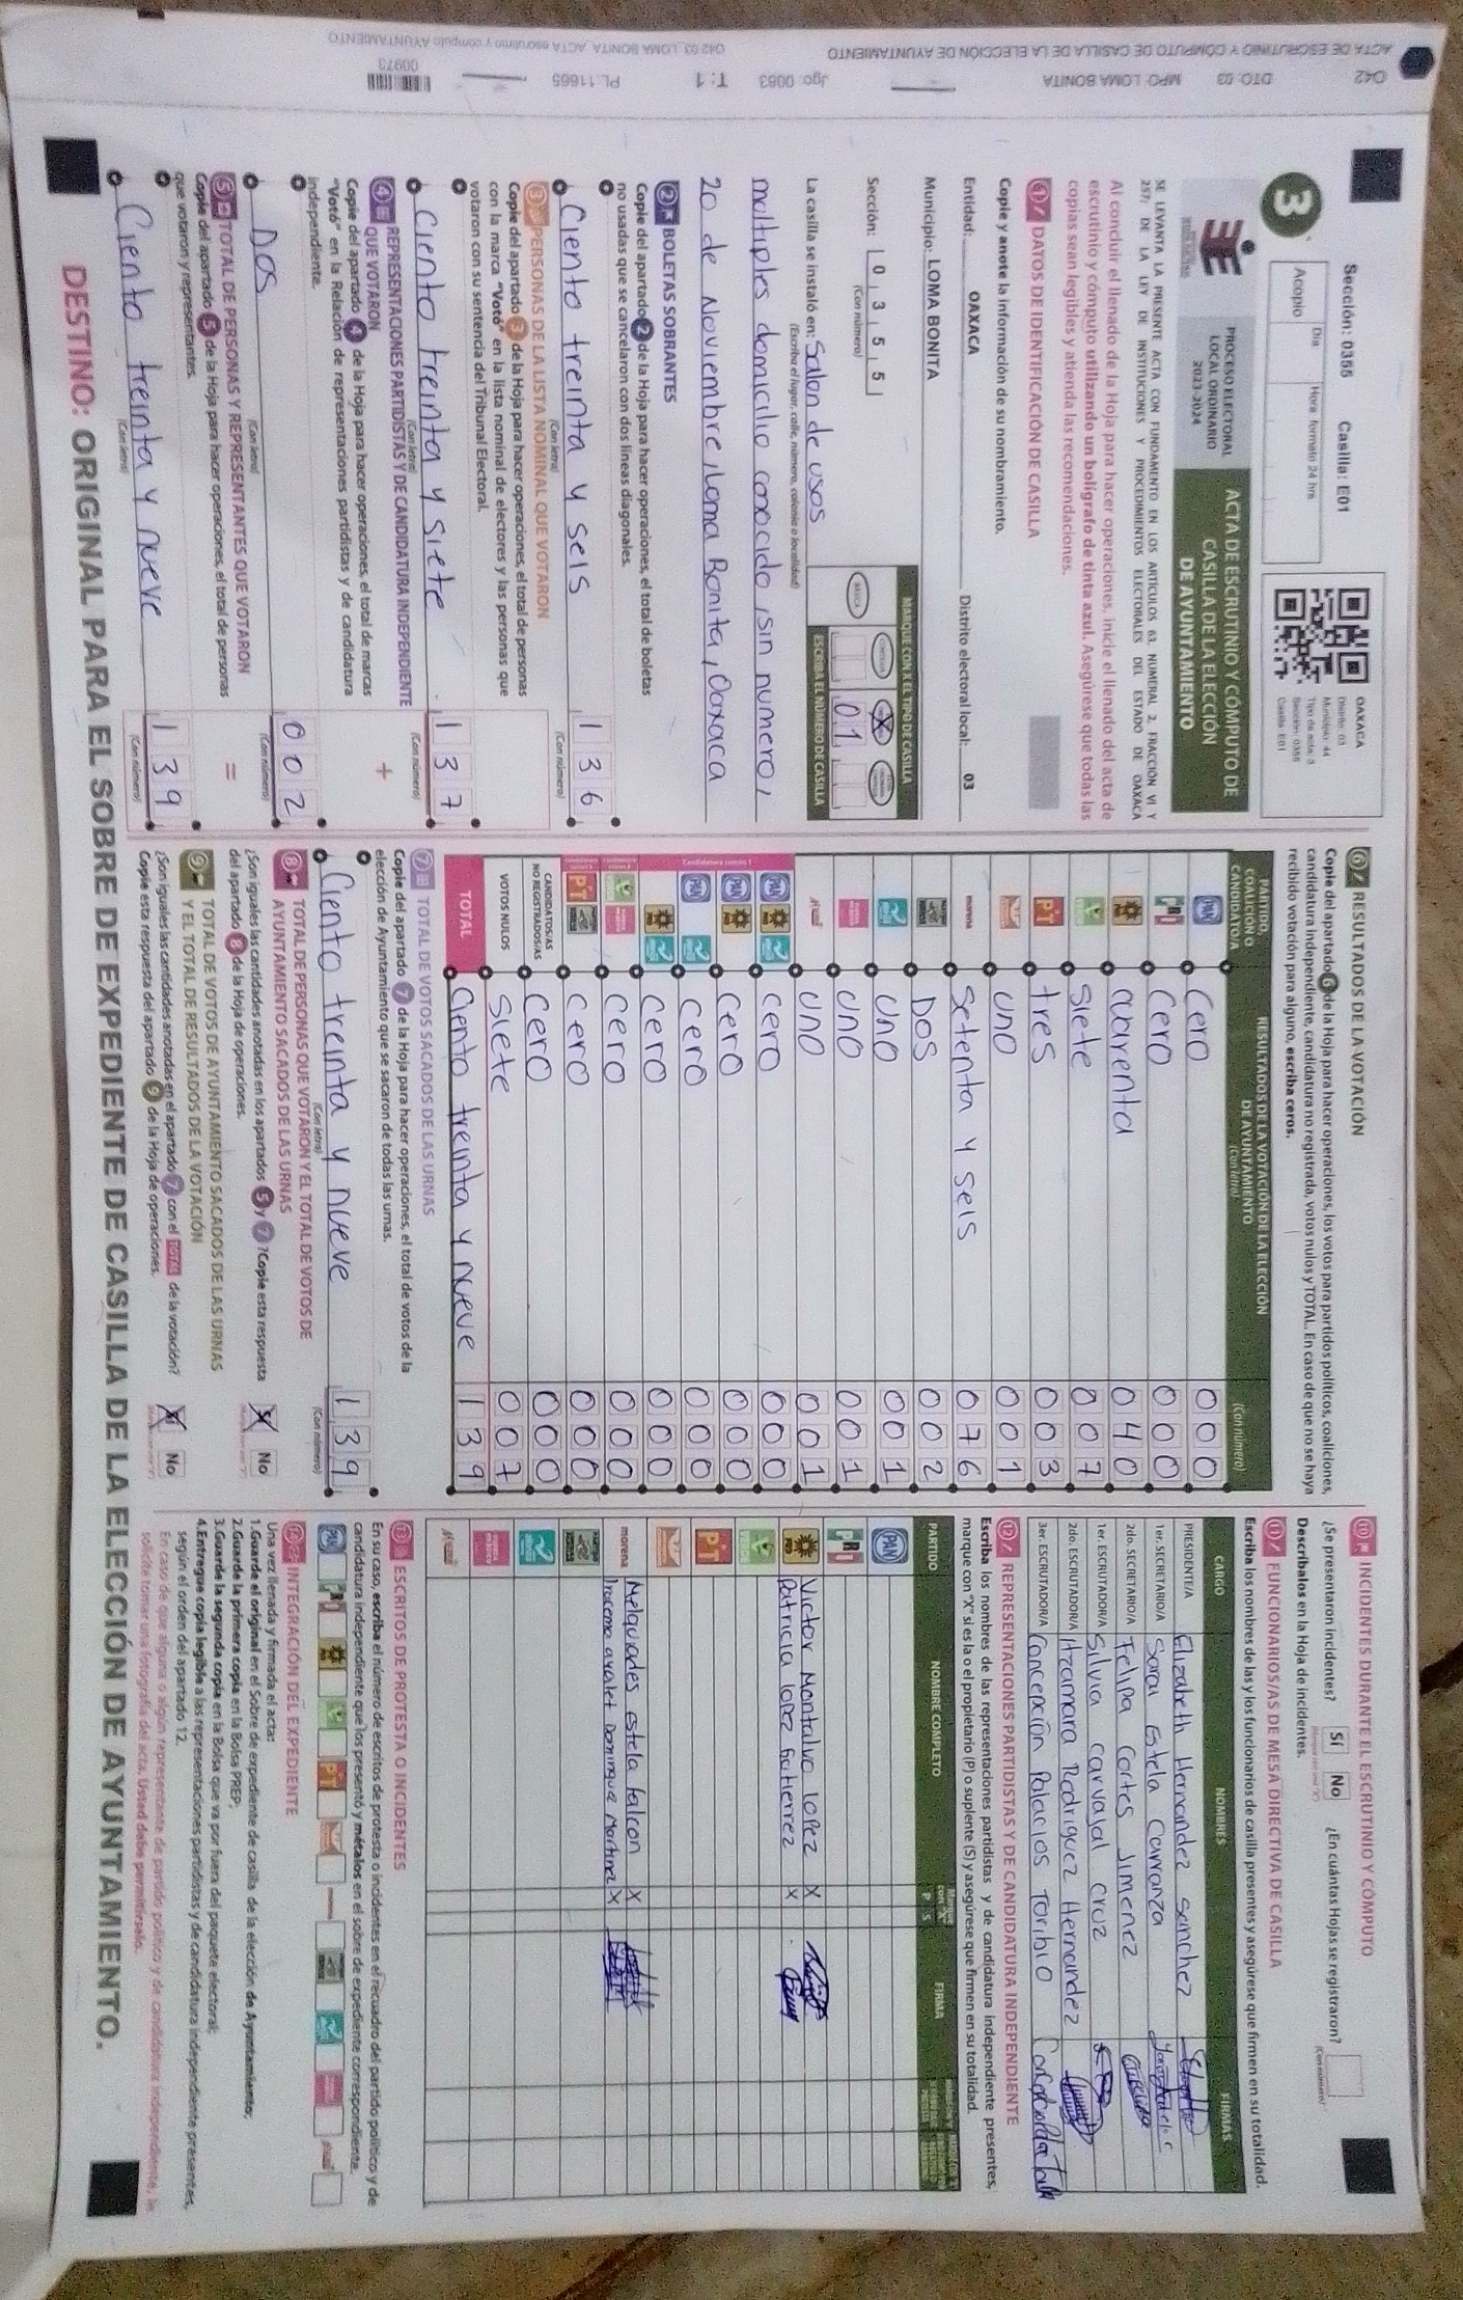 Sección: 0355 Casilla: E01
Día Hora formato 24 hrs
Acopio
3
OAXACA
Distrito: 03
Municipio: 44
Tipo de acta: 3
Sección: 0355
Casilla: E01
PROCESO ELECTORAL
LOCAL ORDINARIO
2023-2024
ACTA DE ESCRUTINIO Y CÓMPUTO DE
CASILLA DE LA ELECCIÓN
DE AYUNTAMIENTO
SE LEVANTA LA PRESENTE ACTA CON FUNDAMENTO EN LOS ARTÍCULOS 63, NUMERAL 2, FRACCIÓN VI Y
257; DE LA LEY DE INSTITUCIONES Y PROCEDIMIENTOS ELECTORALES DEL ESTADO DE OAXACA
Al concluir el llenado de la Hoja para hacer operaciones, inicie el llenado del acta de
escrutinio y cómputo utilizando un bolígrafo de tinta azul. Asegúrese que todas las
copias sean legibles y atienda las recomendaciones.
1 DATOS DE IDENTIFICACIÓN DE CASILLA
Copie y anote la información de su nombramiento.
Entidad: OAXACA Distrito electoral local: 03
Municipio: LOMA BONITA
Sección: 0 3 5 5
(Con número)
MARQUE CON X EL TIPO DE CASILLA
BÁSICA X
ESCRIBA EL NÚMERO DE CASILLA
01
La casilla se instaló en: Salon de usos
(Escriba el lugar, calle, número, colonia o localidad)
multiples domicilio conocido, sin numero,
20 de Noviembre, Loma Bonita, Oaxaca
2 BOLETAS SOBRANTES
Copie del apartado 2 de la Hoja para hacer operaciones, el total de boletas
no usadas que se cancelaron con dos líneas diagonales.
Ciento treinta y seis 136
(Con letra) (Con número)
3 PERSONAS DE LA LISTA NOMINAL QUE VOTARON
Copie del apartado 3 de la Hoja para hacer operaciones, el total de personas
con la marca "Votó" en la lista nominal de electores y las personas que
votaron con su sentencia del Tribunal Electoral.
Ciento treinta y siete 137
(Con letra) (Con número)
4 REPRESENTACIONES PARTIDISTAS Y DE CANDIDATURA INDEPENDIENTE
QUE VOTARON +
Copie del apartado 4 de la Hoja para hacer operaciones, el total de marcas
"Votó" en la Relación de representaciones partidistas y de candidatura
independiente.
Dos 002
(Con letra) (Con número)
5 TOTAL DE PERSONAS Y REPRESENTANTES QUE VOTARON =
Copie del apartado 5 de la Hoja para hacer operaciones, el total de personas
que votaron y representantes.
Ciento treinta y nueve 139
(Con letra) (Con número)
6 RESULTADOS DE LA VOTACIÓN
Copie del apartado 6 de la Hoja para hacer operaciones, los votos para partidos políticos, coaliciones,
candidatura independiente, candidatura no registrada, votos nulos y TOTAL. En caso de que no se haya
recibido votación para alguno, escriba ceros.
PARTIDO,
COALICIÓN O
CANDIDATO/A
RESULTADOS DE LA VOTACIÓN DE LA ELECCIÓN
DE AYUNTAMIENTO
(Con letra) (Con número)
PAN Cero 000
PRI Cero 000
PRD cuarenta 040
VERDE Siete 007
PT tres 003
uno 001
morena Setenta y seis 076
Dos 002
uno 001
uno 001
uno 001
Candidatura común 1
PAN PRD cero 000
PAN PRD cero 000
PAN cero 000
PRD cero 000
cero 000
PT cero 000
CANDIDATOS/AS
NO REGISTRADOS/AS cero 000
VOTOS NULOS Siete 007
TOTAL Ciento treinta y nueve 139
7 TOTAL DE VOTOS SACADOS DE LAS URNAS
Copie del apartado 7 de la Hoja para hacer operaciones, el total de votos de la
elección de Ayuntamiento que se sacaron de todas las urnas.
Ciento treinta y nueve 139
(Con letra) (Con número)
8 TOTAL DE PERSONAS QUE VOTARON Y EL TOTAL DE VOTOS DE
AYUNTAMIENTO SACADOS DE LAS URNAS
¿Son iguales las cantidades anotadas en los apartados 5 y 7? Copie esta respuesta
del apartado 8 de la Hoja de operaciones.
Sí X No
9 TOTAL DE VOTOS DE AYUNTAMIENTO SACADOS DE LAS URNAS
Y EL TOTAL DE RESULTADOS DE LA VOTACIÓN
¿Son iguales las cantidades anotadas en el apartado 7 con el TOTAL de la votación?
Copie esta respuesta del apartado 9 de la Hoja de operaciones.
Sí X No
10 INCIDENTES DURANTE EL ESCRUTINIO Y CÓMPUTO
¿Se presentaron incidentes? Sí No ¿En cuántas Hojas se registraron?
(Con número)
Descríbalos en la Hoja de incidentes.
11 FUNCIONARIOS/AS DE MESA DIRECTIVA DE CASILLA
Escriba los nombres de las y los funcionarios de casilla presentes y asegúrese que firmen en su totalidad.
CARGO NOMBRES FIRMAS
PRESIDENTE/A Elizabeth Hernandez sanchez
1er. SECRETARIO/A Sarai Estela Carranza
2do. SECRETARIO/A Felipa Cortes Jimenez
1er. ESCRUTADOR/A Silvia carvajal cruz
2do. ESCRUTADOR/A Itzamara Rodriguez Hernandez
3er. ESCRUTADOR/A Concepción Palacios Toribio
12 REPRESENTACIONES PARTIDISTAS Y DE CANDIDATURA INDEPENDIENTE
Escriba los nombres de las representaciones partidistas y de candidatura independiente presentes,
marque con "X" si es la o el propietario (P) o suplente (S) y asegúrese que firmen en su totalidad.
PARTIDO NOMBRE COMPLETO P S FIRMA
PAN
PRI
PRD Victor Montalvo lopez X
Patricia lopez Gutierrez X
VERDE
PT
morena Melquiades estela falcon X
X
13 ESCRITOS DE PROTESTA O INCIDENTES
En su caso, escriba el número de escritos de protesta o incidentes en el recuadro del partido político y de
candidatura independiente que los presentó y métalos en el sobre de expediente correspondiente.
14 INTEGRACIÓN DEL EXPEDIENTE
Una vez llenada y firmada el acta:
1.Guarde el original en el Sobre de expediente de casilla de la elección de Ayuntamiento;
2.Guarde la primera copia en la Bolsa PREP;
3.Guarde la segunda copia en la Bolsa que va por fuera del paquete electoral;
4.Entregue copia legible a las representaciones partidistas y de candidatura independiente presentes,
según el orden del apartado 12.
En caso de que alguna o algún representante de partido político y de candidatura independiente, la
solicite tomar una fotografía del acta, Usted debe permitírselo.
DESTINO: ORIGINAL PARA EL SOBRE DE EXPEDIENTE DE CASILLA DE LA ELECCIÓN DE AYUNTAMIENTO.
042 DTO: 03 MPO: LOMA BONITA Jgo: 0063 T: 1 PL: 11665 00973
ACTA DE ESCRUTINIO Y CÓMPUTO DE CASILLA DE LA ELECCIÓN DE AYUNTAMIENTO
042 03 LOMA BONITA ACTA escrutinio y cómputo AYUNTAMIENTO